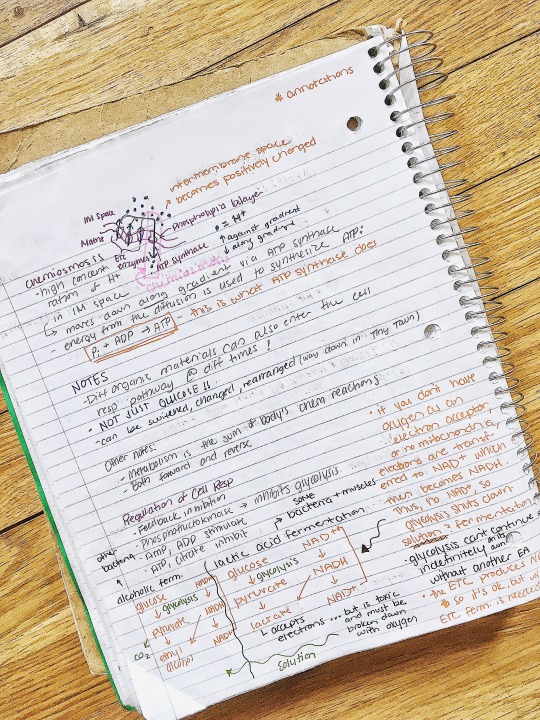 * annotations
intermembrane space
becomes positively changed
IM space
Matrix
Phospholipid bilayer
• = H+
↑ against gradient
↓ along gradient
ETC
enzymes
ATP synthase
chemiosmosis
Chemiosmosis
- high concent-
ration of H+
in IM space
↳ moves down along gradient via ATP synthase
- energy from the diffusion is used to synthesize ATP!
Pi + ADP → ATP
- this is what ATP synthase does
NOTES
- Diff organic materials can also enter the cell
resp pathway @ diff times!
• NOT JUST GLUCOSE!!
- can be switched, changed, rearranged (way down in Tiny Town)
Other notes:
- Metabolism is the sum of body's chem reactions
- Both forward and reverse
Regulation of Cell Resp
- Feedback inhibition
- Phosphofructokinase → inhibits glycolysis
- AMP, ADP stimulate
- ATP, citrate inhibit
• if you don't have
oxygen as an
electron acceptor,
or no mitochondria,
electrons are transf-
erred to NAD+ which
then becomes NADH.
Thus, no NAD+, so
glycolysis shuts down
solution = fermentation
• glycolysis can't continue
indefinitely
on its
own
without another EA
• the ETC produces
so it's ok, but
ETC ferm. is needed
other
bacteria
alcoholic ferm.
glucose
NAD+
glycolysis
pyruvate
NADH
CO2
ethyl
alcohol
NAD+
some
bacteria + muscles
lactic acid fermentation
glucose
NAD+
glycolysis
pyruvate
NADH
lactate
NAD+
↳ accepts
electrons ... but is toxic
and must be
broken down
with oxygen
solution